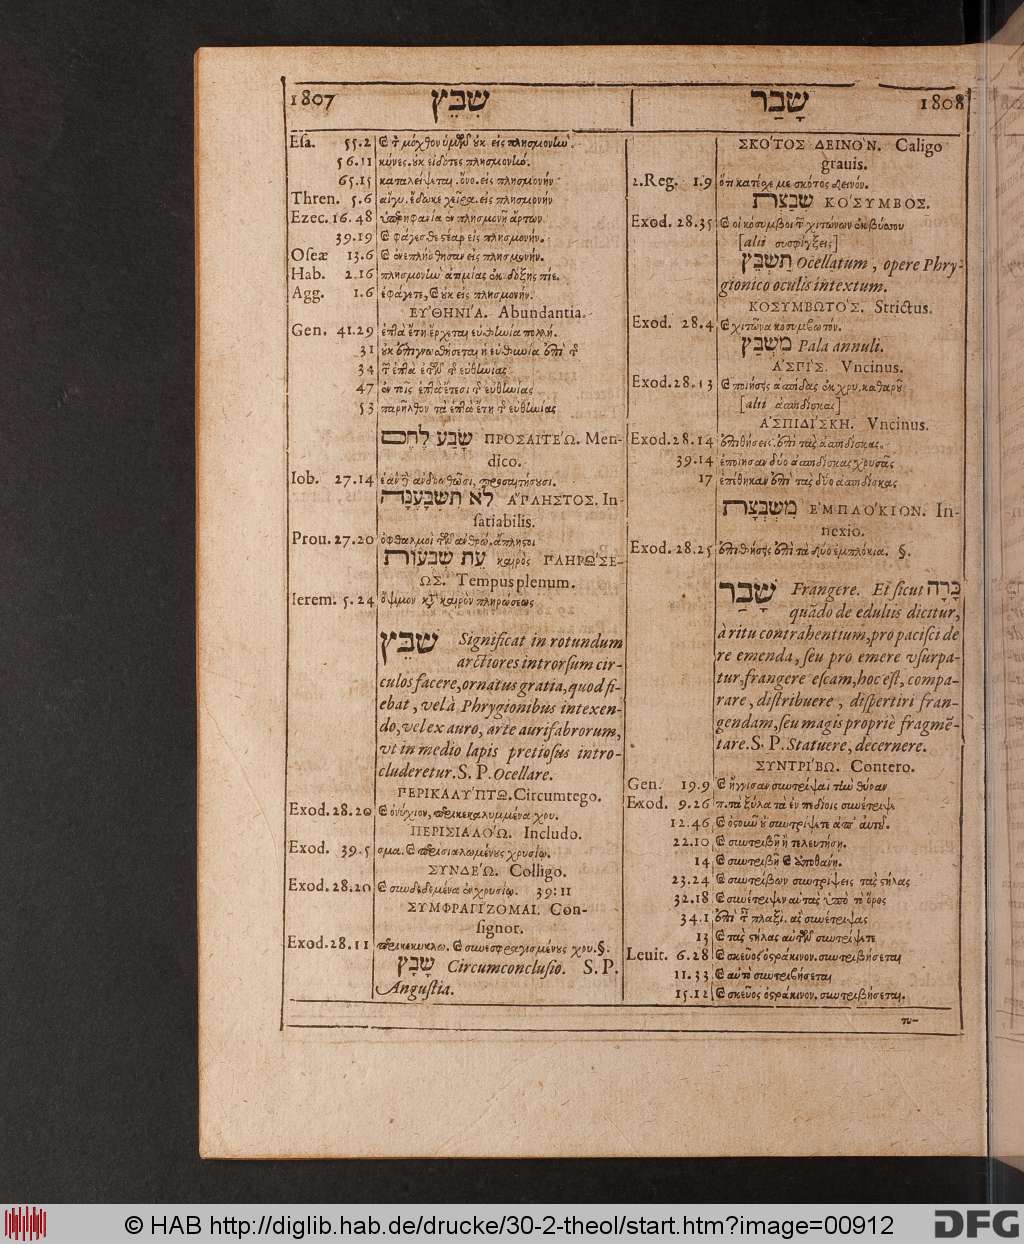 1807 שִׁבֵּץ
Esa. 55.2 καὶ τὸ μόχθον ὑμῶν οὐκ εἰς πλησμονὴν.
56.11 κύνες. οὐκ εἰδότες πλησμονὴν.
65.15 καταλείψεται. ὄνο. εἰς πλησμονὴν
Thren. 5.6 αἴγυ. ἔδωκε χεῖρα. εἰς πλησμονὴν
Ezec. 16.48 ὑπερηφανία ἐν πλησμονῇ ἄρτων
39.19 καὶ φάγεσθε στέαρ εἰς πλησμονὴν.
Oseæ 13.6 καὶ ἐνεπλήσθησαν εἰς πλησμονὴν.
Hab. 2.16 πλησμονὴν ἀτιμίας ἐκ δόξης πίε.
Agg. 1.6 ἐφάγετε, καὶ οὐκ εἰς πλησμονὴν.
ΕΥ̓ΘΗΝΙ´Α. Abundantia.
Gen. 41.29 ἑπτὰ ἔτη ἔρχεται εὐθηνία πολλή.
31 οὐκ ἐπιγνωσθήσεται ἡ εὐθηνία ἐπὶ τῆ
34 τῶν ἑπτὰ ἐτῶν τῆς εὐθηνίας
47 ἐν τοῖς ἑπτὰ ἔτεσι τῆς εὐθηνίας
53 παρῆλθον τὰ ἑπτὰ ἔτη τῆς εὐθηνίας
שָׂבַע לֶחֶם ΠΡΟΣΑΙΤΕ´Ω. Men-
dico.
Iob. 27.14 ἐὰν δὲ ἀνδρωθῶσι, προσαιτήσουσι.
לֹא תִשְׂבַּעְנָה Α῎ΠΛΗΣΤΟΣ. In-
satiabilis.
Prou. 27.20 ὀφθαλμοὶ τῶν ἀνθρώ. ἄπληστοι
עֵת שְׂבָעוֹת καιρὸς ΠΛΗΡΩ´ΣΕ-
ΩΣ. Tempus plenum.
Ierem. 5.24 ὄψιμον κατὰ καιρὸν πληρώσεως
שִׁבֵּץ Significat in rotundum
arctiores introrsum cir-
culos facere, ornatus gratia, quod fi-
ebat, vel à Phrygionibus intexen-
do, vel ex auro, arte aurifabrorum,
vt in medio lapis pretiosus intro-
cluderetur. S. P. Ocellare.
ΠΕΡΙΚΑΛΥ´ΠΤΩ. Circumtego.
Exod. 28.20 καὶ ὀνύχιον, περικεκαλυμμένα χρυ.
ΠΕΡΙΣΙΑΛΟ´Ω. Includo.
Exod. 39.5 σμα. καὶ περισιαλωμένους χρυσίῳ.
ΣΥΝΔΕ´Ω. Colligo.
Exod. 28.20 καὶ συνδεδεμένα ἐν χρυσίῳ. 39:11
ΣΥΜΦΡΑΓΙ´ΖΟΜΑΙ. Con-
signor.
Exod. 28.11 περικεκυκλω. καὶ συνεσφραγισμένους χρυ. §.
שָׁבָץ Circumconclusio. S. P.
Angustia.
שָׁבַר 1808
ΣΚΟ´ΤΟΣ ΔΕΙΝΟ´Ν. Caligo
grauis.
2. Reg. 1.9 ὅτι κατέσχε με σκότος δεινόν.
שֻׁבָּצַת ΚΟ´ΣΥΜΒΟΣ.
Exod. 28.35 καὶ οἱ κόσυμβοι τῶν χιτώνων ἐκ βύσσου
[alii συσφίγξεις]
תַּשְׁבֵּץ Ocellatum, opere Phry-
gionico oculis intextum.
ΚΟΣΥΜΒΩΤΟ´Σ. Strictus.
Exod. 28.4 καὶ χιτῶνα κοσυμβωτόν.
מִשְׁבֵּץ Pala annuli.
Α᾿ΣΠΙ´Σ. Vncinus.
Exod. 28.13 καὶ ποιήσεις ἀσπίδας ἐκ χρυ. καθαροῦ
[alii ἀσπιδίσκας]
Α᾿ΣΠΙΔΙ´ΣΚΗ. Vncinus.
Exod. 28.14 ἐπιθήσεις. ἐπὶ τὰς ἀσπιδίσκας.
39.14 ἐποίησαν δύο ἀσπιδίσκας χρυσᾶς
17 ἐπέθηκαν ἐπὶ τὰς δύο ἀσπιδίσκας
מִשְׁבְּצָת Ε᾿ΜΠΛΟ´ΚΙΟΝ. In-
nexio.
Exod. 28.25 ἐπιθήσεις ἐπὶ τὰ δύο ἐμπλόκια. §.
שָׁבַר Frangere. Et sicut בָּרָה
quādo de eduliis dicitur,
à ritu contrahentium, pro pacisci de
re emenda, seu pro emere vsurpa-
tur, frangere escam, hoc est, compa-
rare, distribuere, dispertiri fran-
gendam, seu magis propriè fragmē-
tare. S. P. Statuere, decernere.
ΣΥΝΤΡΙ´ΒΩ. Contero.
Gen. 19.9 καὶ ἤγγισαν συντρίψαι τὴν θύραν
Exod. 9.26 π. τὰ ξύλα τὰ ἐν πεδίοις συνέτριψε
12.46 καὶ ὀστοῦν οὐ συντρίψετε ἀπ᾽ αὐτοῦ.
22.10 καὶ συντριβῇ ἢ τελευτήσῃ.
14 καὶ συντριβῇ καὶ ἀποθάνῃ.
23.24 καὶ συντρίβων συντρίψεις τὰς στήλας
32.18 καὶ συνέτριψεν αὐτὰς ὑπὸ τὸ ὄρος
34.1 ἐπὶ τῶν πλαξὶ. αἷς συνέτριψας
13 καὶ τὰς στήλας αὐτῶν συντρίψετε
Leuit. 6.28 καὶ σκεῦος ὀστράκινον. συντριβήσεται
11.33 καὶ αὐτὸ συντριβήσεται
15.12 καὶ σκεῦος ὀστράκινον. συντριβήσεται.
τυ-
© HAB http://diglib.hab.de/drucke/30-2-theol/start.htm?image=00912
DFG